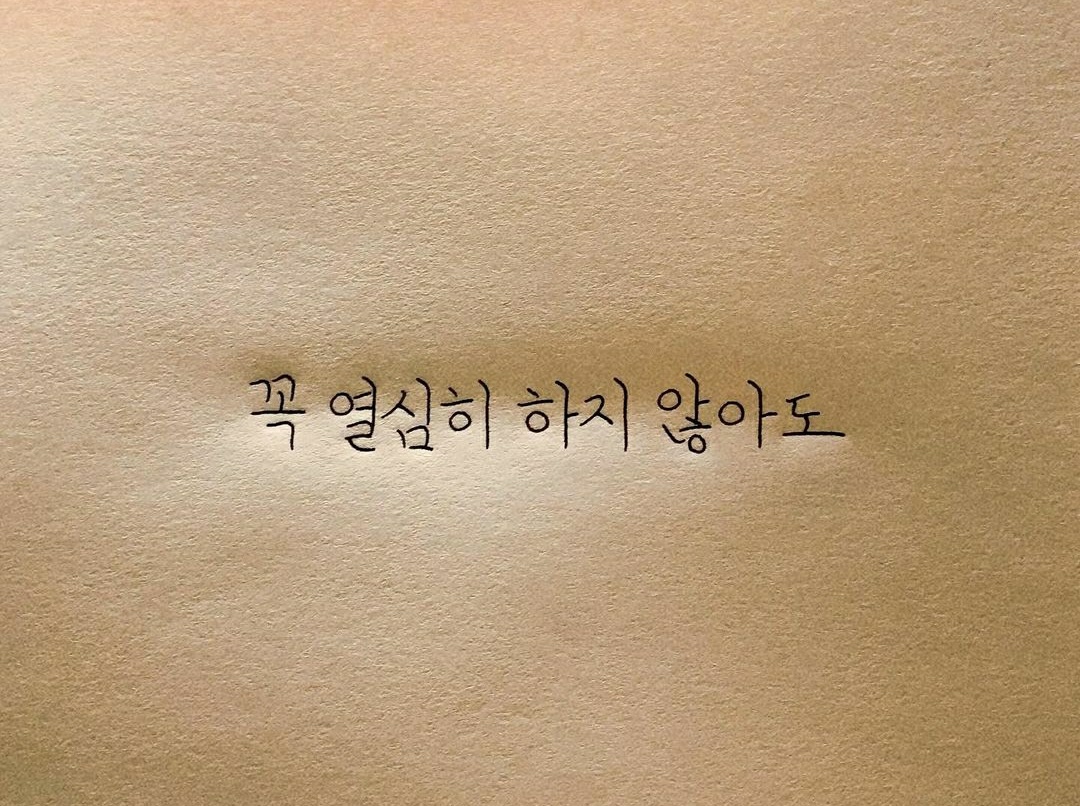 꼭 열심히 하지 않아도